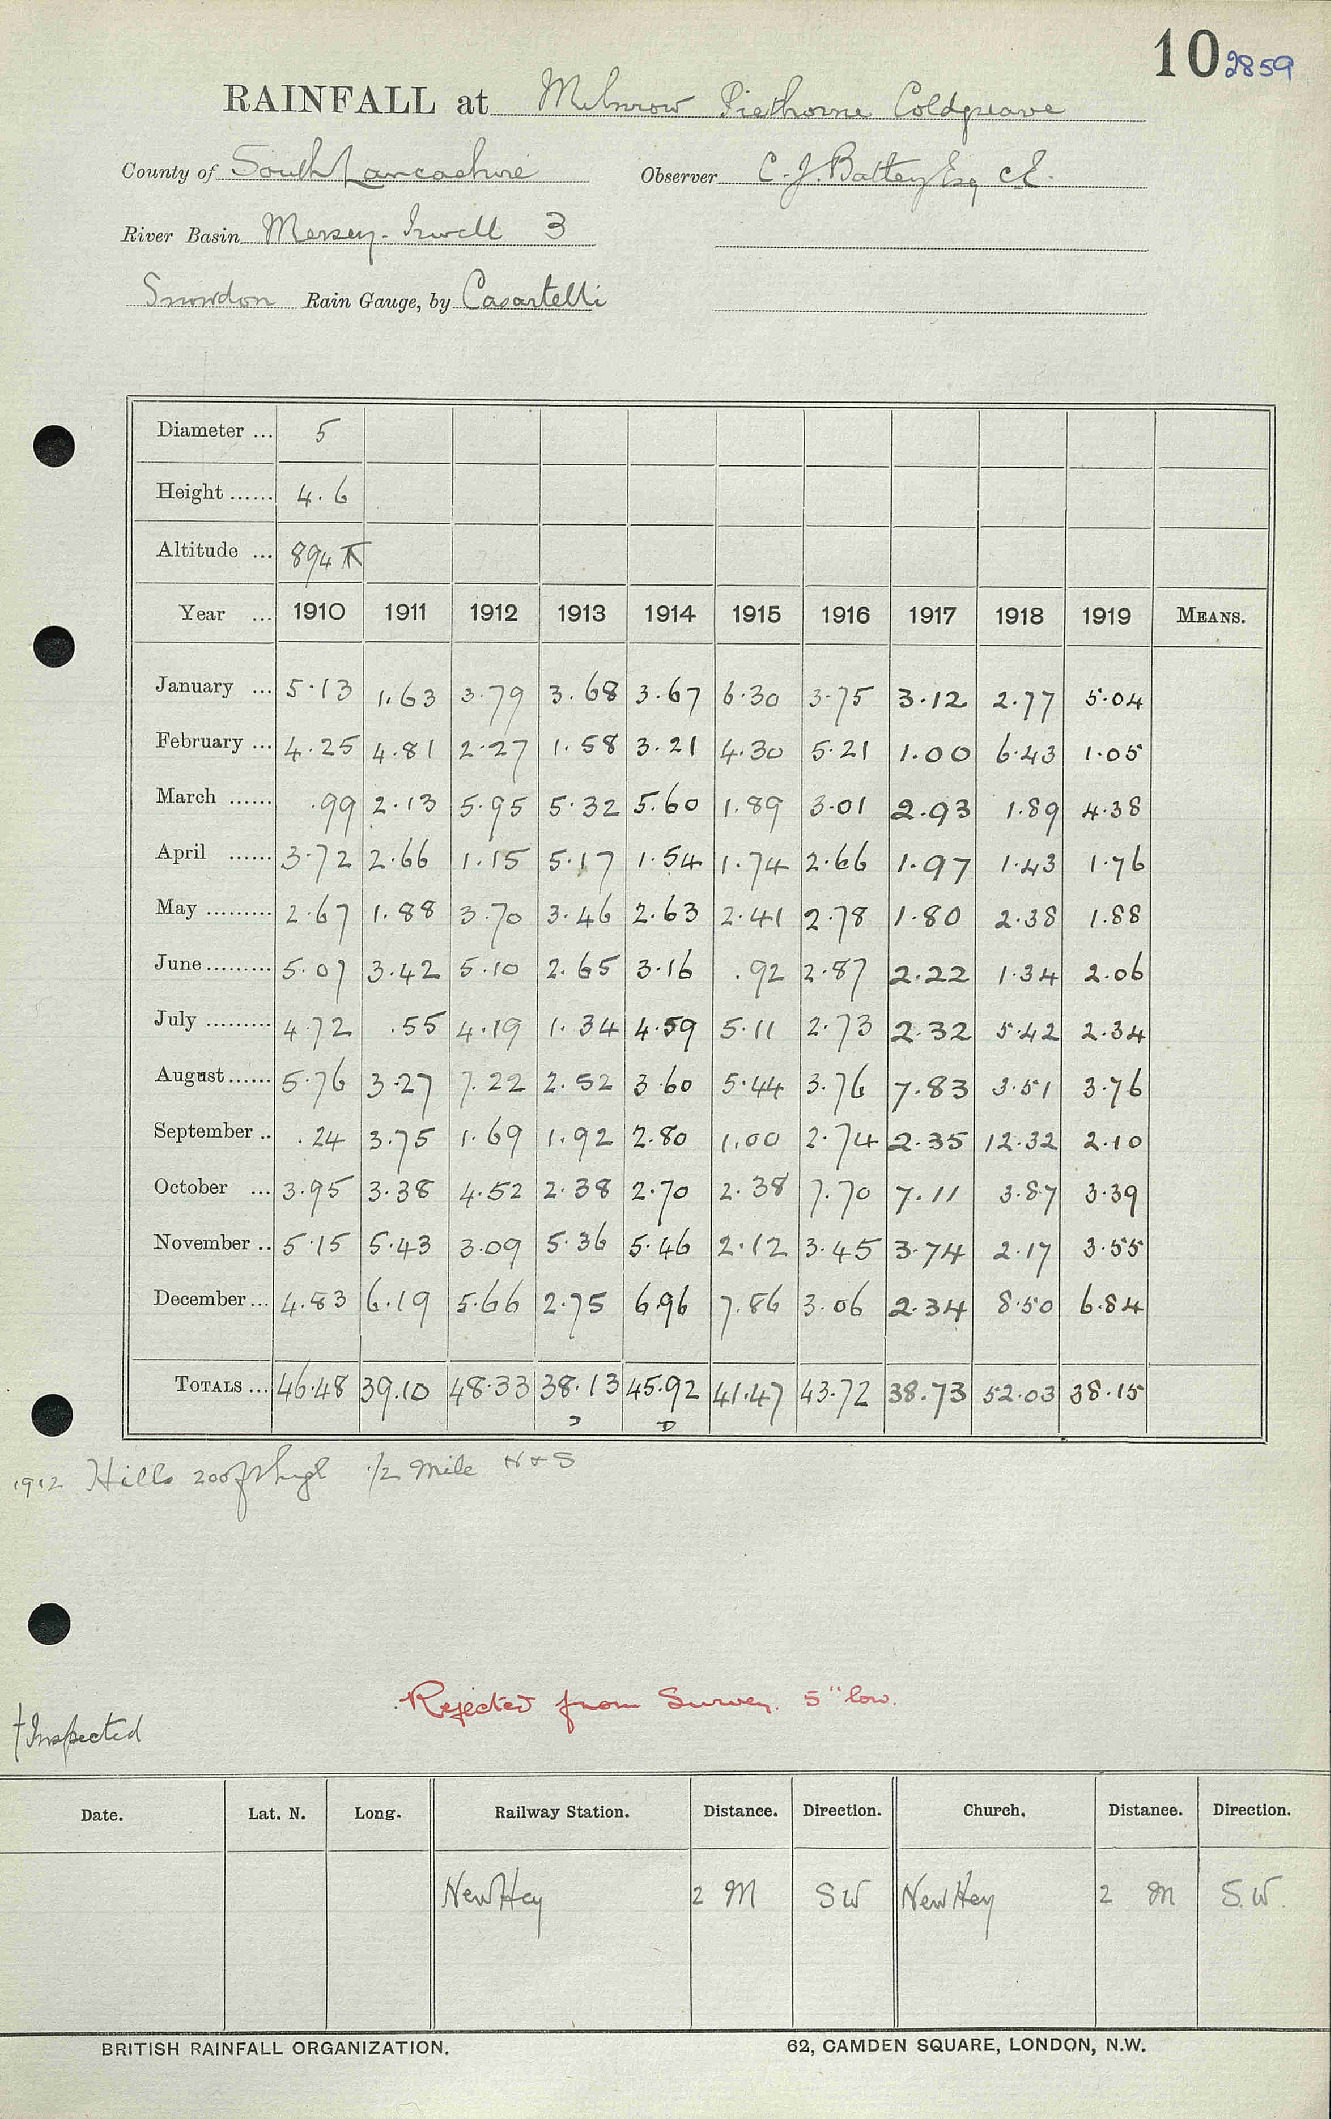 10 2859
RAINFALL at Milnrow Piethorne Coldgreave
County of South Lancashire Observer C. J. Batley Esq C.E.
River Basin Mersey-Irwell 3
Snowdon Rain Gauge, by Casartelli
Diameter ... 5
Height ...... 4.6
Altitude ... 894
Year ... 1910 1911 1912 1913 1914 1915 1916 1917 1918 1919 MEANS.
January ... 5.13 1.63 3.79 3.68 3.67 6.30 3.75 3.12 2.77 5.04
February ... 4.25 4.81 2.27 1.58 3.21 4.30 5.21 1.00 6.43 1.05
March ...... .99 2.13 5.95 5.32 5.60 1.89 3.01 2.93 1.89 4.38
April ...... 3.72 2.66 1.15 5.17 1.54 1.74 2.66 1.97 1.43 1.76
May ......... 2.67 1.88 3.70 3.46 2.63 2.41 2.78 1.80 2.38 1.88
June ......... 5.07 3.42 5.10 2.65 3.16 .92 2.87 2.22 1.34 2.06
July ......... 4.72 .55 4.19 1.34 4.59 5.11 2.73 2.32 5.42 2.34
August ...... 5.76 3.27 7.22 2.52 3.60 5.44 3.76 7.83 3.51 3.76
September .. .24 3.75 1.69 1.92 2.80 1.00 2.74 2.35 12.32 2.10
October ... 3.95 3.38 4.52 2.38 2.70 2.38 7.70 7.11 3.87 3.39
November .. 5.15 5.43 3.09 5.36 5.46 2.12 3.45 3.74 2.17 3.55
December ... 4.83 6.19 5.66 2.75 6.96 7.86 3.06 2.34 8.50 6.84
TOTALS ... 46.48 39.10 48.33 38.13 45.92 41.47 43.72 38.73 52.03 38.15
D D
1912 Hills 200ft high 1/2 mile N & S
Rejected from Survey. 5" low.
†Inspected
Date. Lat. N. Long. Railway Station. Distance. Direction. Church. Distance. Direction.
New Hey 2 M SW New Hey 2 M S.W.
BRITISH RAINFALL ORGANIZATION. 62, CAMDEN SQUARE, LONDON, N.W.